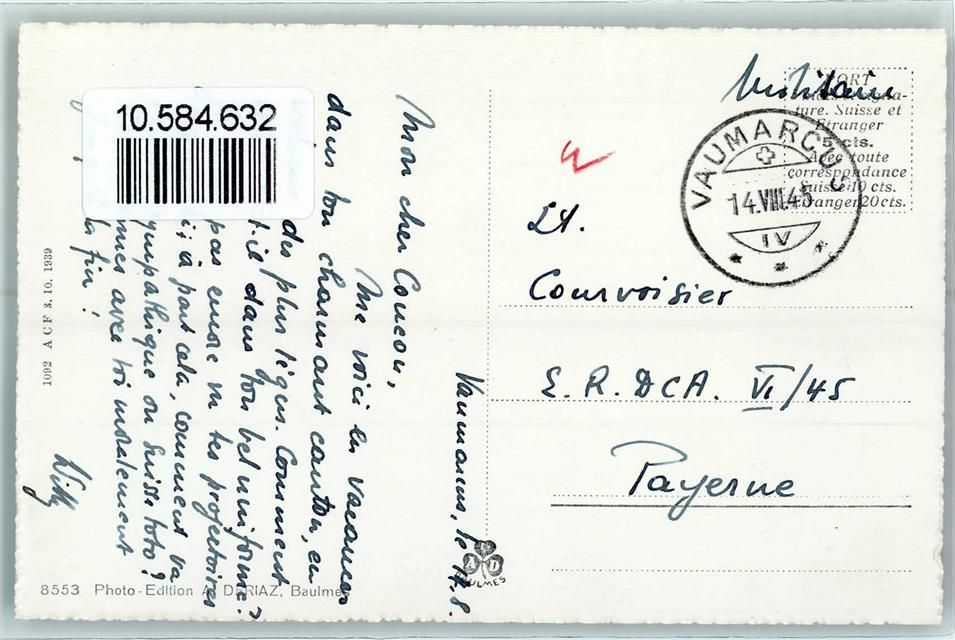 10.584.632
Militaire
PORT
ture. Suisse et
Etranger
5 cts.
Avec toute
correspondance
Suisse 10 cts.
Etranger 20 cts.
VAUMARCUS
14.VIII.45
IV
Lt.
Courvoisier
E. R. DCA. VI/45
Payerne
Vaumarcus, le 14.8.
Mon cher Coucou,
Me voici en vacances
dans ton charmant canton, en
des plus légus. Comment
il dans ton bel uniforme?
pas encore vu tes projectoires
à part cela, comment va
sympathique ou Suisse toto?
mes avec toi moralement
la fin!
Willy
1092 A C F 3. 10. 1939
8553 Photo-Edition A. DERIAZ, Baulmes
A D
BAULMES